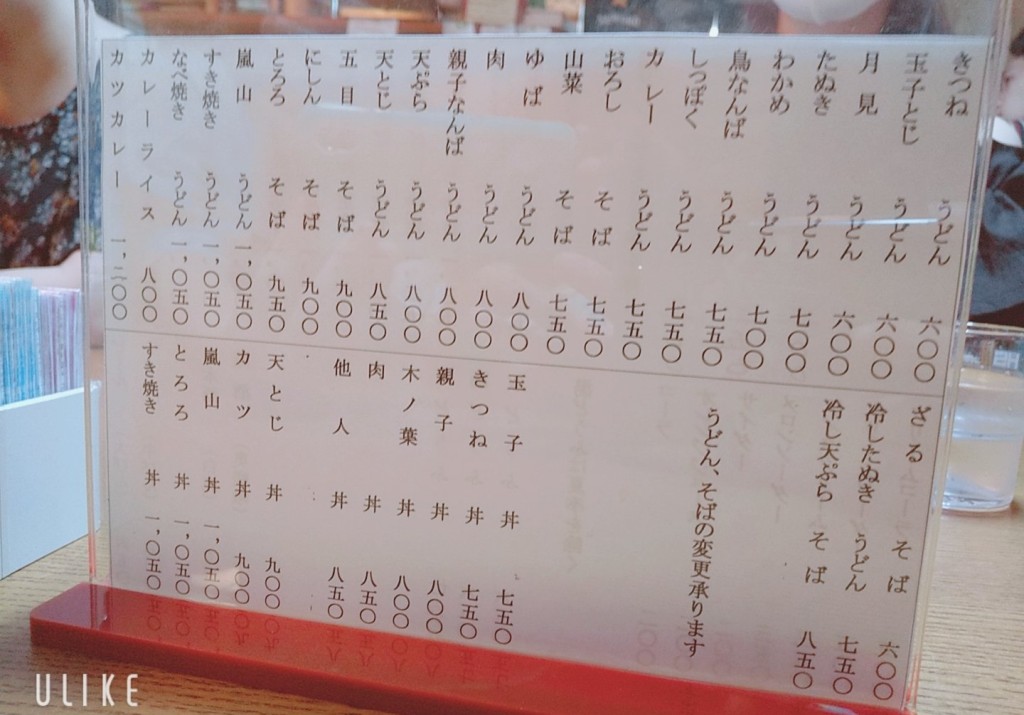 きつね うどん 六〇〇
玉子とじ うどん 六〇〇
月見 うどん 六〇〇
たぬき うどん 七〇〇
わかめ うどん 七〇〇
鳥なんば うどん 七五〇
しっぽく うどん 七五〇
カレー うどん 七五〇
おろし そば 七五〇
山菜 そば 七五〇
ゆば うどん 八〇〇
肉 うどん 八〇〇
親子なんば うどん 八〇〇
天ぷら うどん 八〇〇
天とじ うどん 八五〇
五目 そば 九〇〇
にしん そば 九〇〇
とろろ そば 九五〇
嵐山 うどん 一,〇五〇
すき焼き うどん 一,〇五〇
なべ焼き うどん 一,〇五〇
カレーライス 八〇〇
カツカレー 一,二〇〇
ざる そば 六〇〇
冷したぬき うどん 七五〇
冷し天ぷら そば 八五〇
うどん、そばの変更承ります
玉子 丼 七五〇
きつね 丼 七五〇
親子 丼 八〇〇
木ノ葉 丼 八〇〇
肉 丼 八五〇
他人 丼 八五〇
天とじ 丼 九〇〇
カツ 丼 九〇〇
嵐山 丼 一,〇五〇
とろろ 丼 一,〇五〇
すき焼き 丼 一,〇五〇
ULIKE